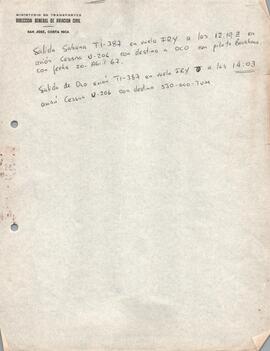 MINISTERIO DE TRANSPORTES
DIRECCION GENERAL DE AVIACION CIVIL
SAN JOSE, COSTA RICA
Salida Sabana TI-387 en vuelo IRY a las 12:19 Z en
avión Cessna U-206 con destino a OCO con piloto
con fecha 20. Abril 67.
Salida de Oco avión TI-387 en vuelo IRY a las 14:03
avión Cessna U-206 con destino